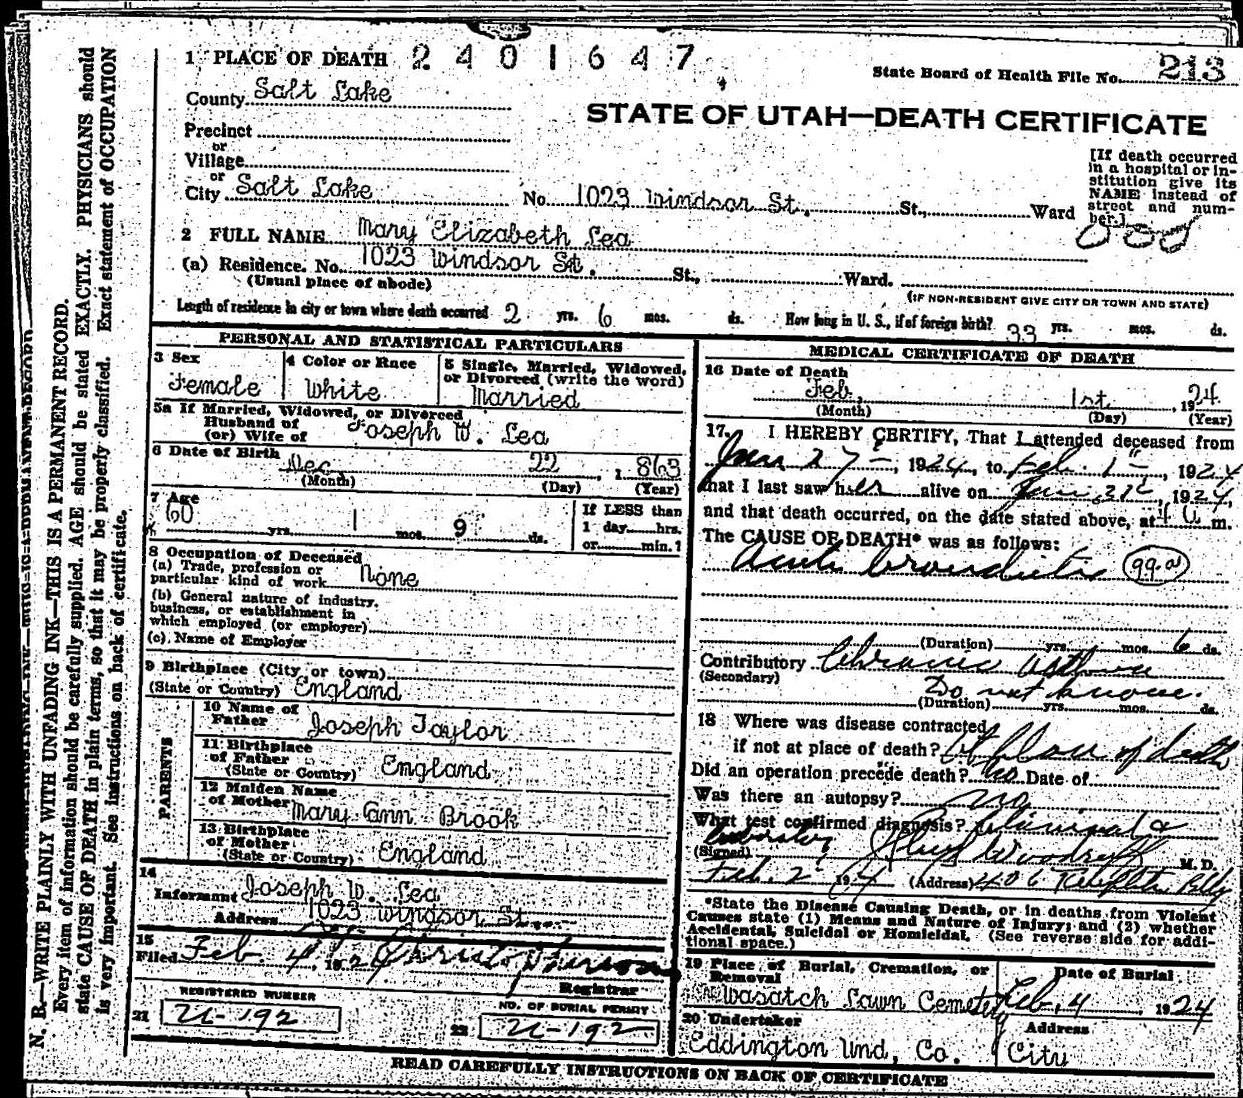 1 PLACE OF DEATH 2401647
State Board of Health File No. 213
County Salt Lake
STATE OF UTAH—DEATH CERTIFICATE
Precinct
or
Village
or
City Salt Lake No. 1023 Windsor St. St., Ward
[If death occurred
in a hospital or in-
stitution give its
NAME instead of
street and num-
ber.]
2 FULL NAME Mary Elizabeth Lea
(a) Residence. No. 1023 Windsor St. St., Ward.
(Usual place of abode)
(IF NON-RESIDENT GIVE CITY OR TOWN AND STATE)
Length of residence in city or town where death occurred 2 yrs. 6 mos. ds. How long in U. S., if of foreign birth? 33 yrs. mos. ds.
PERSONAL AND STATISTICAL PARTICULARS
3 Sex
Female
4 Color or Race
White
5 Single, Married, Widowed,
or Divorced (write the word)
Married
5a If Married, Widowed, or Divorced
Husband of
(or) Wife of Joseph W. Lea
6 Date of Birth
Dec 22 1863
(Month) (Day) (Year)
7 Age
60 yrs. 1 mos. 9 ds.
If LESS than
1 day hrs.
or min.?
8 Occupation of Deceased
(a) Trade, profession or
particular kind of work None
(b) General nature of industry,
business, or establishment in
which employed (or employer)
(c) Name of Employer
9 Birthplace (City or town)
(State or Country) England
PARENTS
10 Name of
Father Joseph Taylor
11 Birthplace
of Father
(State or Country) England
12 Maiden Name
of Mother Mary Ann Brook
13 Birthplace
of Mother
(State or Country) England
14
Informant Joseph W. Lea
Address 1023 Windsor St.
15
Filed Feb. 4, 1924
Registrar
REGISTERED NUMBER
21 U-192
NO. OF BURIAL PERMIT
22 U-192
MEDICAL CERTIFICATE OF DEATH
16 Date of Death
Feb, 1st, 1924
(Month) (Day) (Year)
17. I HEREBY CERTIFY, That I attended deceased from
Jan 27, 1924, to Feb. 1, 1924
that I last saw her alive on Jan. 31, 1924,
and that death occurred, on the date stated above, at m.
The CAUSE OF DEATH* was as follows:
Acute bronchitis 99-a
(Duration) yrs. mos. 6 ds.
Contributory Chronic asthma
(Secondary)
Do not know.
(Duration) yrs. mos. ds.
18 Where was disease contracted
if not at place of death? At place of death
Did an operation precede death? no Date of
Was there an autopsy? no
What test confirmed diagnosis? Clinical &
laboratory
(Signed) Woodruff M. D.
Feb. 2 1924 (Address) 406 Bldg
*State the Disease Causing Death, or in deaths from Violent
Causes state (1) Means and Nature of Injury; and (2) whether
Accidental, Suicidal or Homicidal. (See reverse side for addi-
tional space.)
19 Place of Burial, Cremation, or
Removal
Wasatch Lawn Cemetery
Date of Burial
Feb. 4 1924
20 Undertaker
Eddington Und, Co.
Address
City
READ CAREFULLY INSTRUCTIONS ON BACK OF CERTIFICATE
N. B.—WRITE PLAINLY WITH UNFADING INK—THIS IS A PERMANENT RECORD.
Every item of information should be carefully supplied. AGE should be stated EXACTLY. PHYSICIANS should
state CAUSE OF DEATH in plain terms, so that it may be properly classified. Exact statement of OCCUPATION
is very important. See instructions on back of certificate.